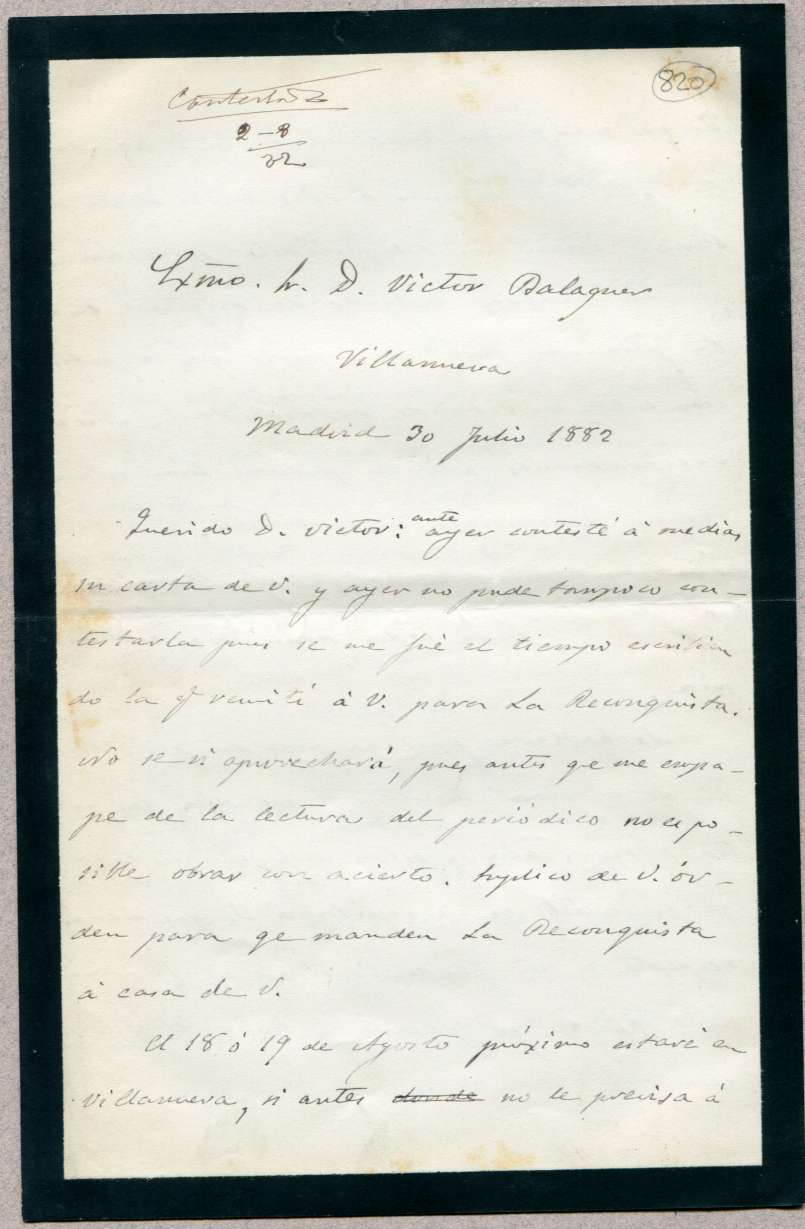 Contestada
820
2-8
82
Exmo. Sr. D. Victor Balaguer
Villanueva
Madrid 30 Julio 1882
Querido D. Victor: ante ayer contesté á medias
su carta de V. y ayer no pude tampoco con-
testarla pues se me fué el tiempo escribien
do la q remití á V. para La Reconquista.
No se si aprovechará, pues antes qe me empa-
pe de la lectura del periódico no es po-
sible obrar con acierto. Suplico de V. ór-
den para qe manden La Reconquista
á casa de V.
El 18 ó 19 de Agosto próximo estaré en
Villanueva, si antes donde no le precisa á